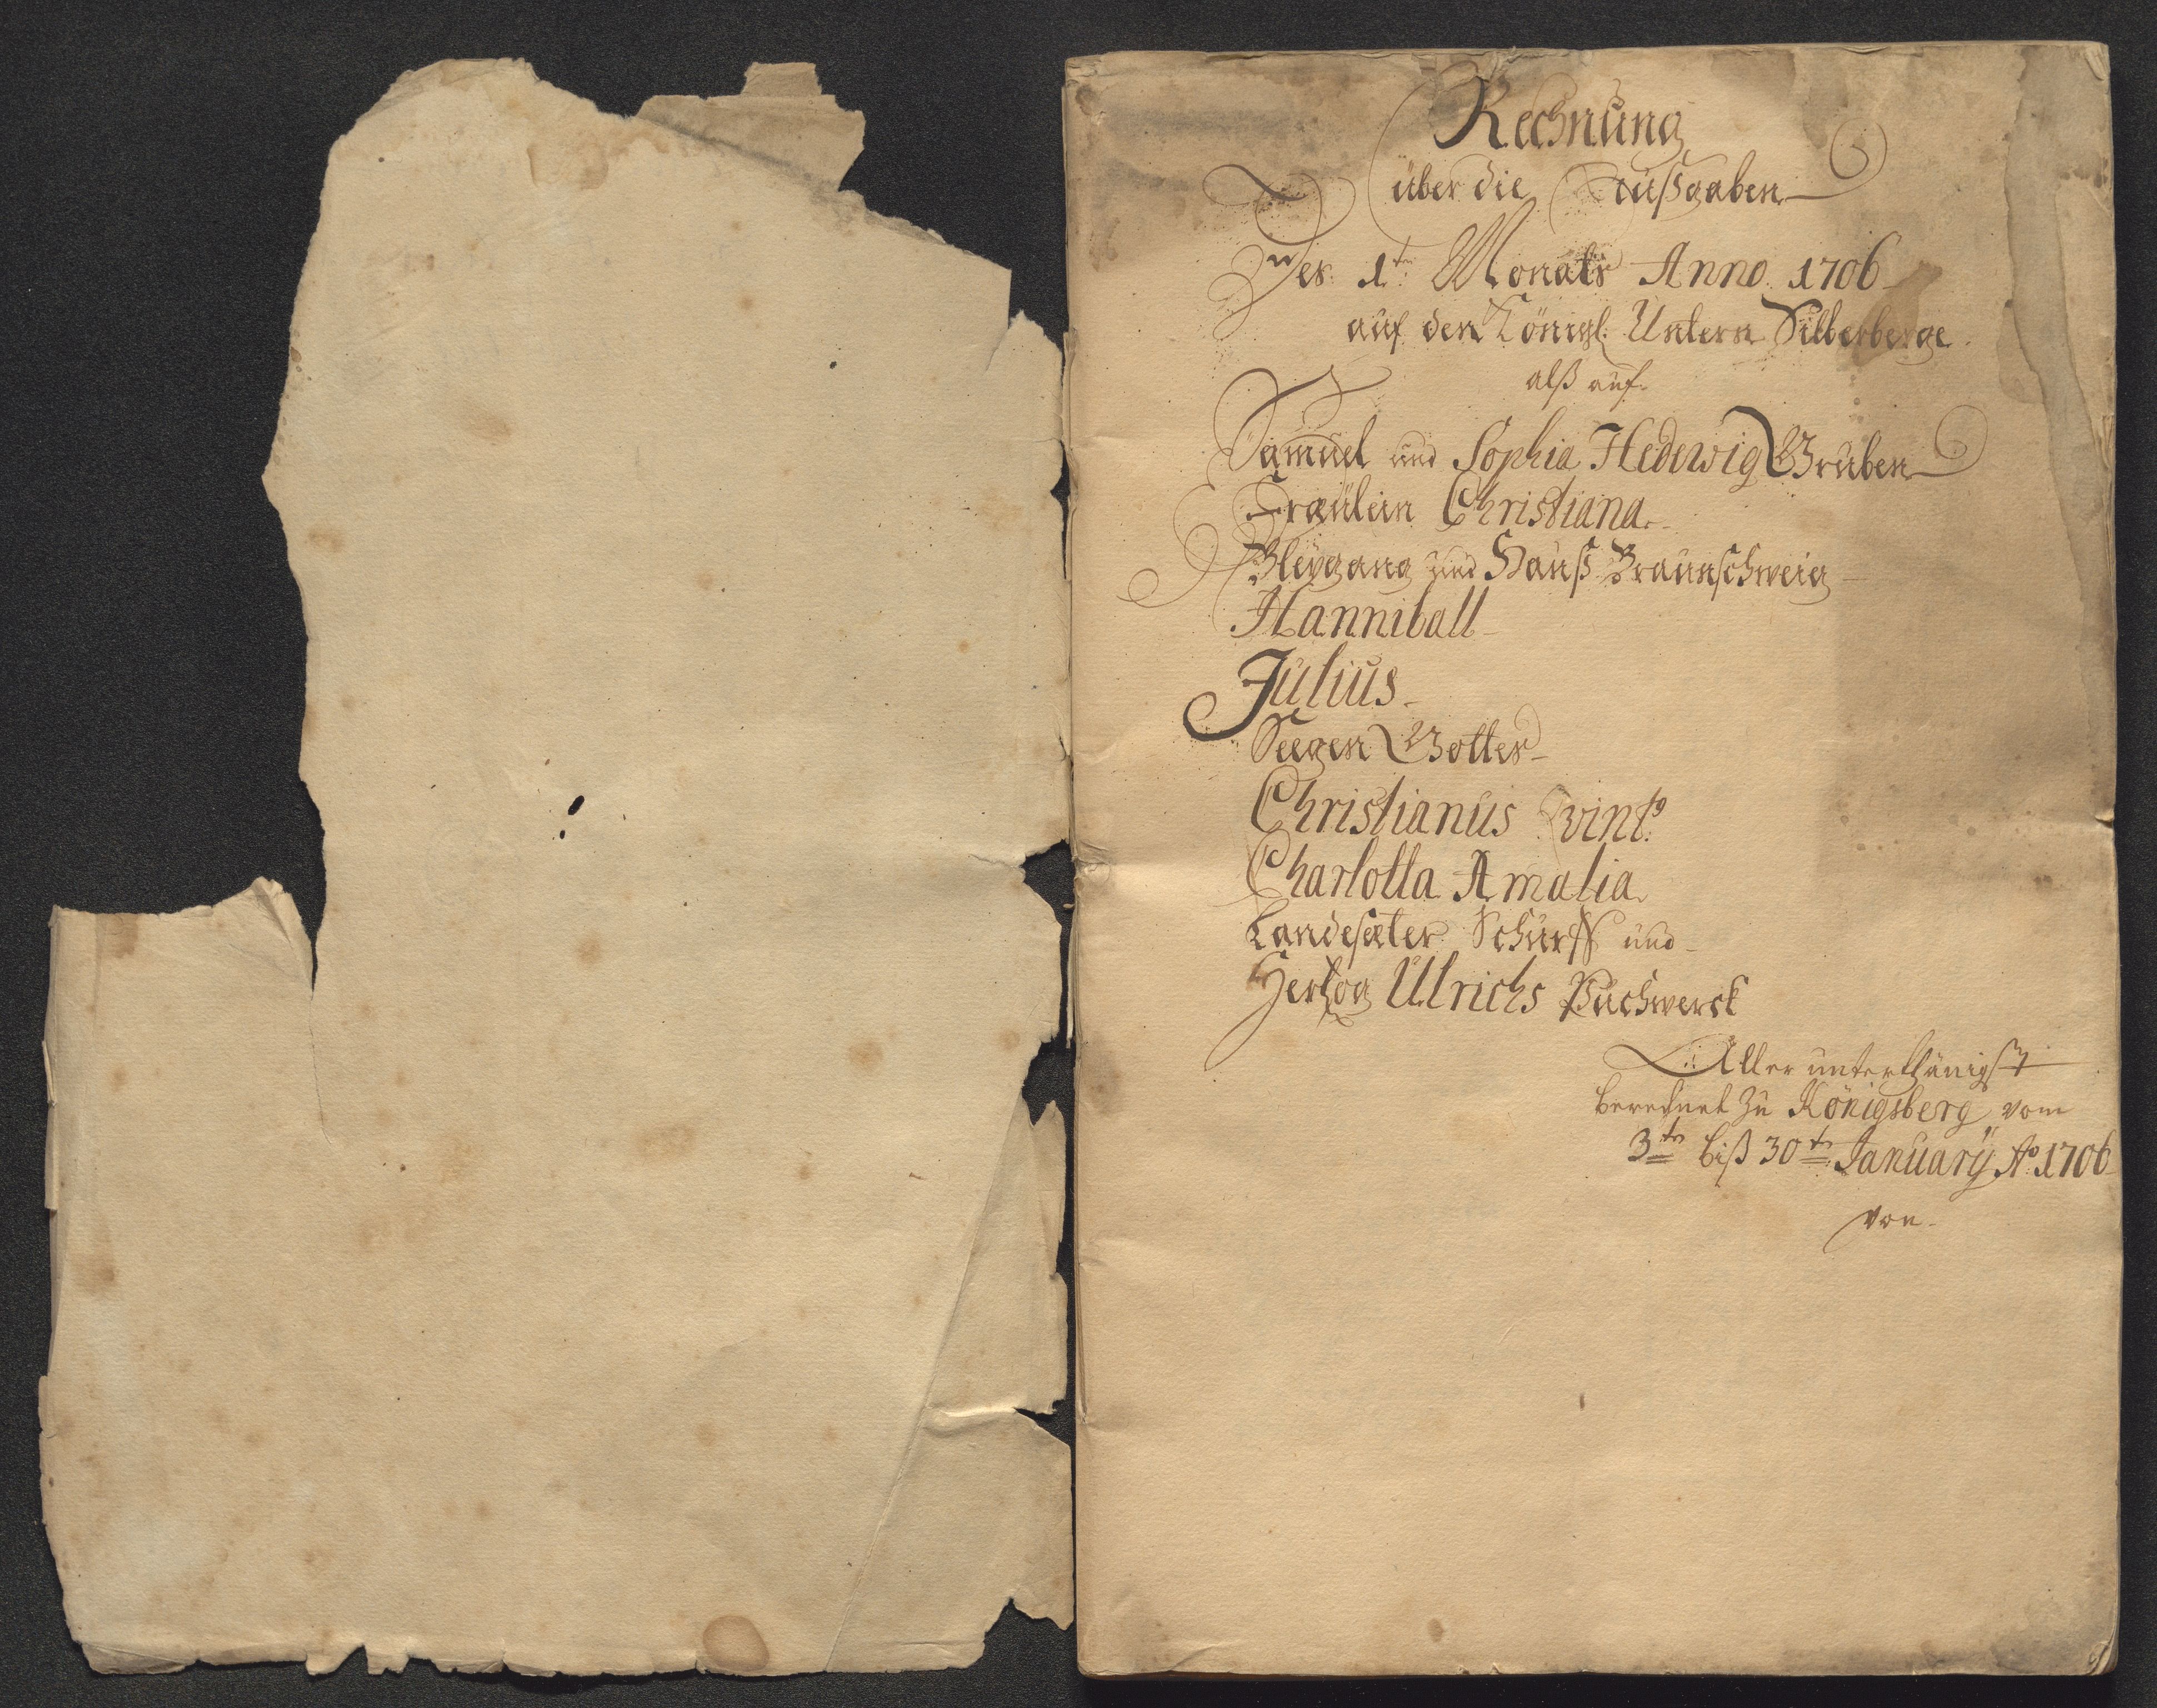 Rechnung
über die Außgaben
Des 1t. Monats Anno. 1706
auf den Königl: Untern Silberberge.
alß auf.
Samuel und Sophia Hedewig Gruben
Fräulein Christiana.
Bleygang und Hauß Braunschweig
Hanniball
Julius.
Seegen Gottes
Christianus Qvint9
Charlotta Amalia.
Landesæter Schürff und
Hertzog Ulrichs Puchwerck
Aller unterthänigst
berechnet Zu Königsberg vom
3tn biß 30tn January Ao 1706
von